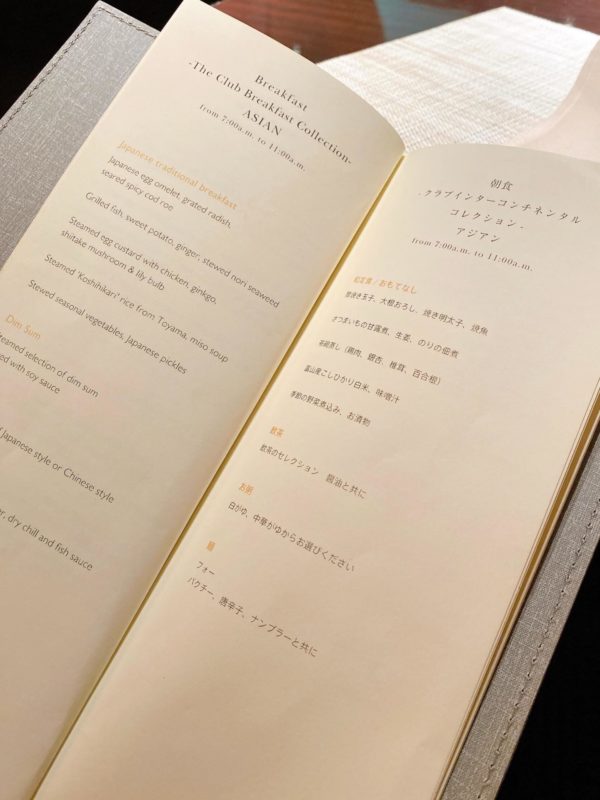 Breakfast
-The Club Breakfast Collection-
ASIAN
from 7:00a.m. to 11:00a.m.
Japanese traditional breakfast
Japanese egg omelet, grated radish,
seared spicy cod roe
Grilled fish, sweet potato, ginger, stewed nori seaweed
Steamed egg custard with chicken, ginkgo,
shiitake mushroom & lily bulb
Steamed 'Koshihikari' rice from Toyama, miso soup
Stewed seasonal vegetables, Japanese pickles
Dim Sum
selection of dim sum
with soy sauce
Japanese style or Chinese style
dry chill and fish sauce
朝食
-クラブインターコンチネンタル
コレクション-
アジアン
from 7:00a.m. to 11:00a.m.
和定食/おもてなし
厚焼き玉子、大根おろし、焼き明太子、焼魚
さつまいもの甘露煮、生姜、のりの佃煮
茶碗蒸し（鶏肉、銀杏、椎茸、百合根）
富山産こしひかり白米、味噌汁
季節の野菜煮込み、お漬物
飲茶
飲茶のセレクション 醤油と共に
お粥
白がゆ、中華がゆからお選びください
麺
フォー
パクチー、唐辛子、ナンプラーと共に